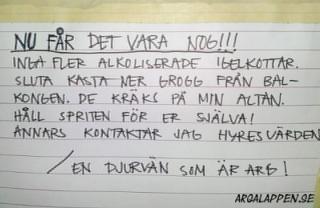 NU FÅR DET VARA NOG!!!
INGA FLER ALKOLISERADE IGELKOTTAR.
SLUTA KASTA NER GROGG FRÅN BAL-
KONGEN. DE KRÄKS PÅ MIN ALTAN.
HÅLL SPRITEN FÖR ER SJÄLVA!
ANNARS KONTAKTAR JAG HYRESVÄRDEN
/ EN DJURVÄN SOM ÄR ARG!
ARGALAPPEN.SE